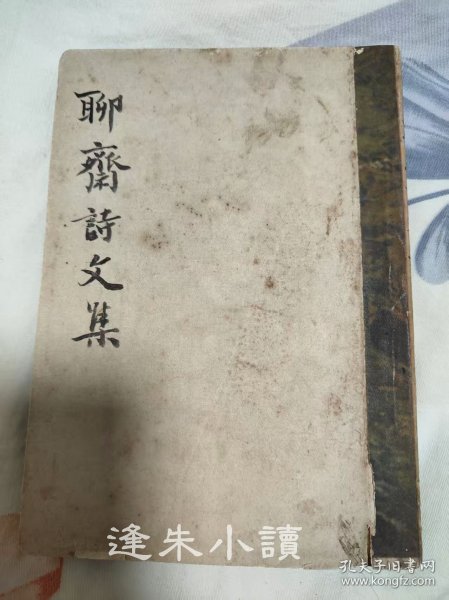 聊齋詩文集
逢朱小讀
孔夫子旧书网
www.kongfz.com